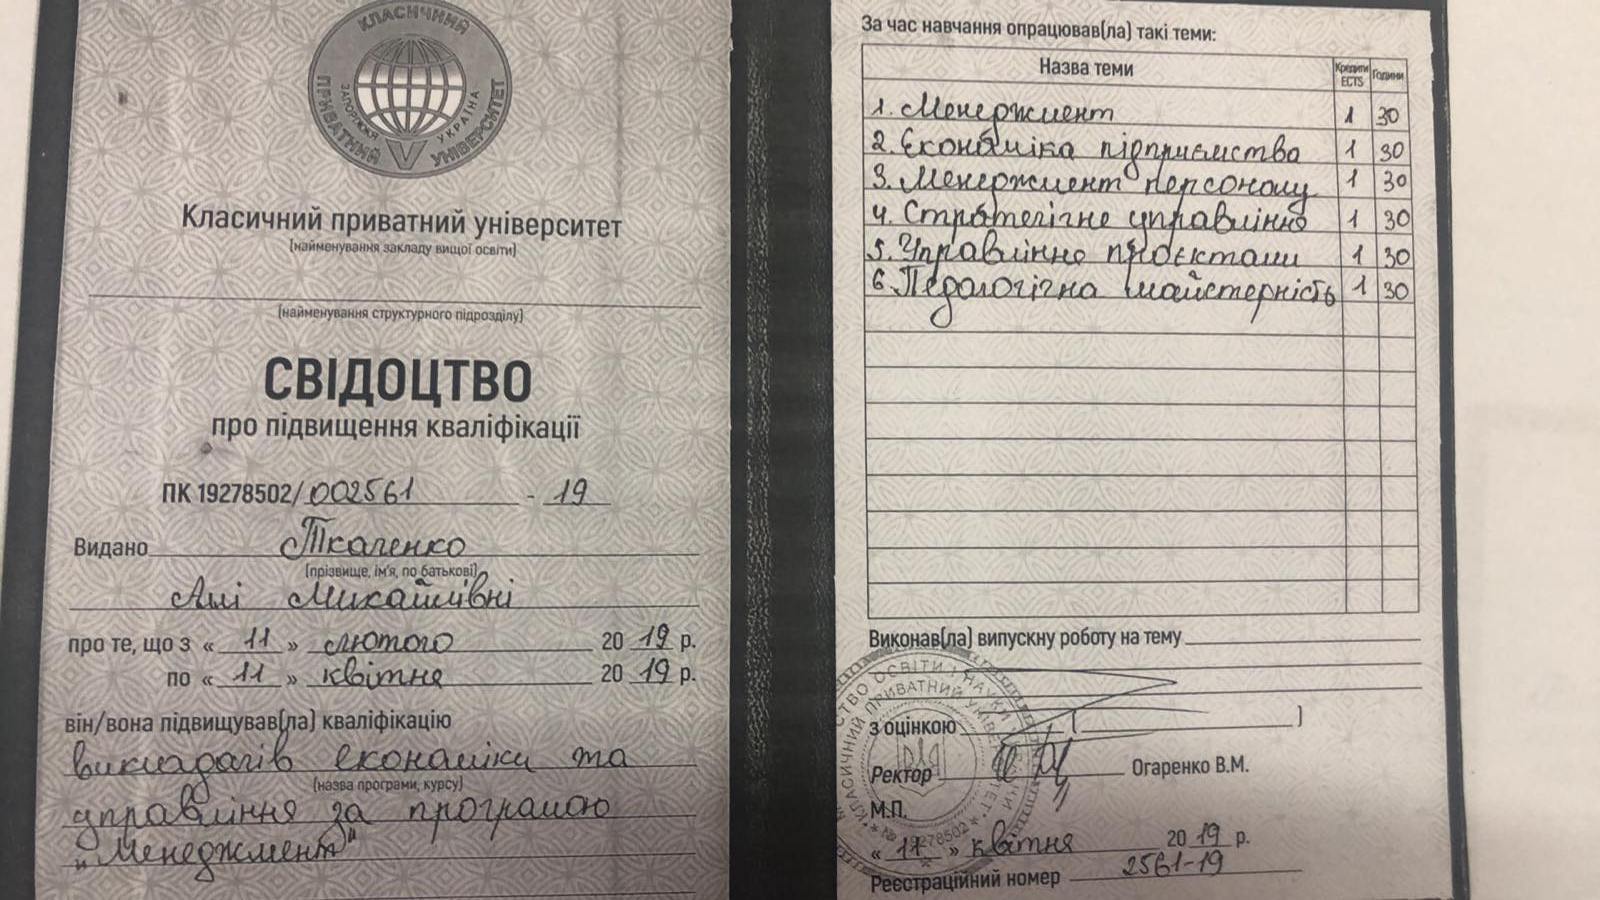 КЛАСИЧНИЙ
ПРИВАТНИЙ УНІВЕРСИТЕТ
ЗАПОРІЖЖЯ УКРАЇНА
Класичний приватний університет
(найменування закладу вищої освіти)
(найменування структурного підрозділу)
СВІДОЦТВО
про підвищення кваліфікації
ПК 19278502/002561 - 19
Видано Ткаленко
(прізвище, ім'я, по батькові)
Алі Михайлівні
про те, що з « 11 » лютого 20 19 р.
по « 11 » квітня 20 19 р.
він/вона підвищував(ла) кваліфікацію
викладачів економіки та
(назва програми, курсу)
управління за програмою
"Менеджмент"
За час навчання опрацював(ла) такі теми:
Назва теми Кредити ECTS Години
1. Менеджмент 1 30
2. Економіка підприємства 1 30
3. Менеджмент персоналу 1 30
4. Стратегічне управління 1 30
5. Управління проєктами 1 30
6. Педагогічна майстерність 1 30
Виконав(ла) випускну роботу на тему
з оцінкою ( )
Ректор Огаренко В.М.
М.П.
« 11 » квітня 20 19 р.
Реєстраційний номер 2561-19